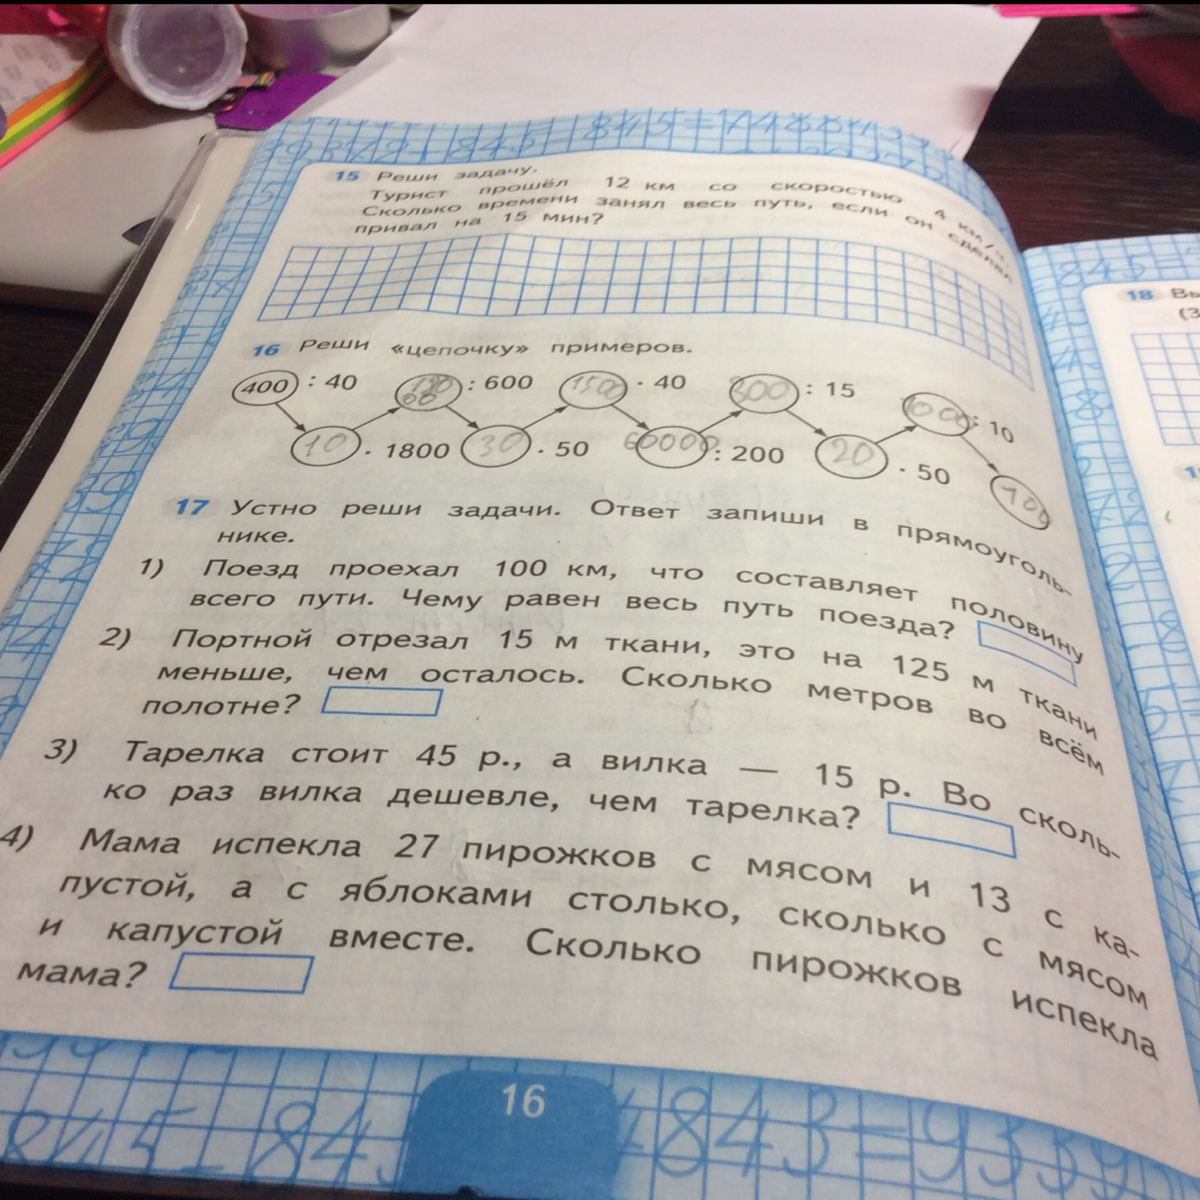 15 Реши задачу.
Турист прошёл 12 км со скоростью 4 км/ч.
Сколько времени занял весь путь, если он сделал
привал на 15 мин?
16 Реши «цепочку» примеров.
400 : 40 180 00 : 600 1500 · 40 300 : 15 1000 : 10
10 · 1800 30 · 50 60000 : 200 20 · 50 100
17 Устно реши задачи. Ответ запиши в прямоуголь-
нике.
1) Поезд проехал 100 км, что составляет половину
всего пути. Чему равен весь путь поезда?
2) Портной отрезал 15 м ткани, это на 125 м ткани
меньше, чем осталось. Сколько метров во всём
полотне?
3) Тарелка стоит 45 р., а вилка — 15 р. Во сколь-
ко раз вилка дешевле, чем тарелка?
4) Мама испекла 27 пирожков с мясом и 13 с ка-
пустой, а с яблоками столько, сколько с мясом
и капустой вместе. Сколько пирожков испекла
мама?
16
845=
18 Вы
(3